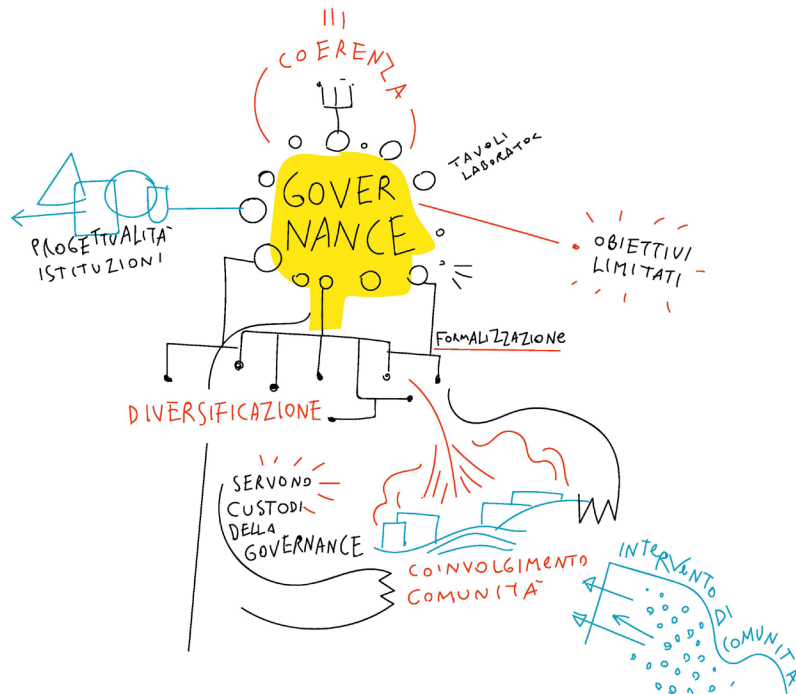 COERENZA
TAVOLI
LABORATOR
GOVER
NANCE
PROGETTUALITÀ
ISTITUZIONI
OBIETTIVI
LIMITATI
FORMALIZZAZIONE
DIVERSIFICAZIONE
SERVONO
CUSTODI
DELLA
GOVERNANCE
COINVOLGIMENTO
COMUNITÀ
INTERVENTO
DI
COMUNITÀ